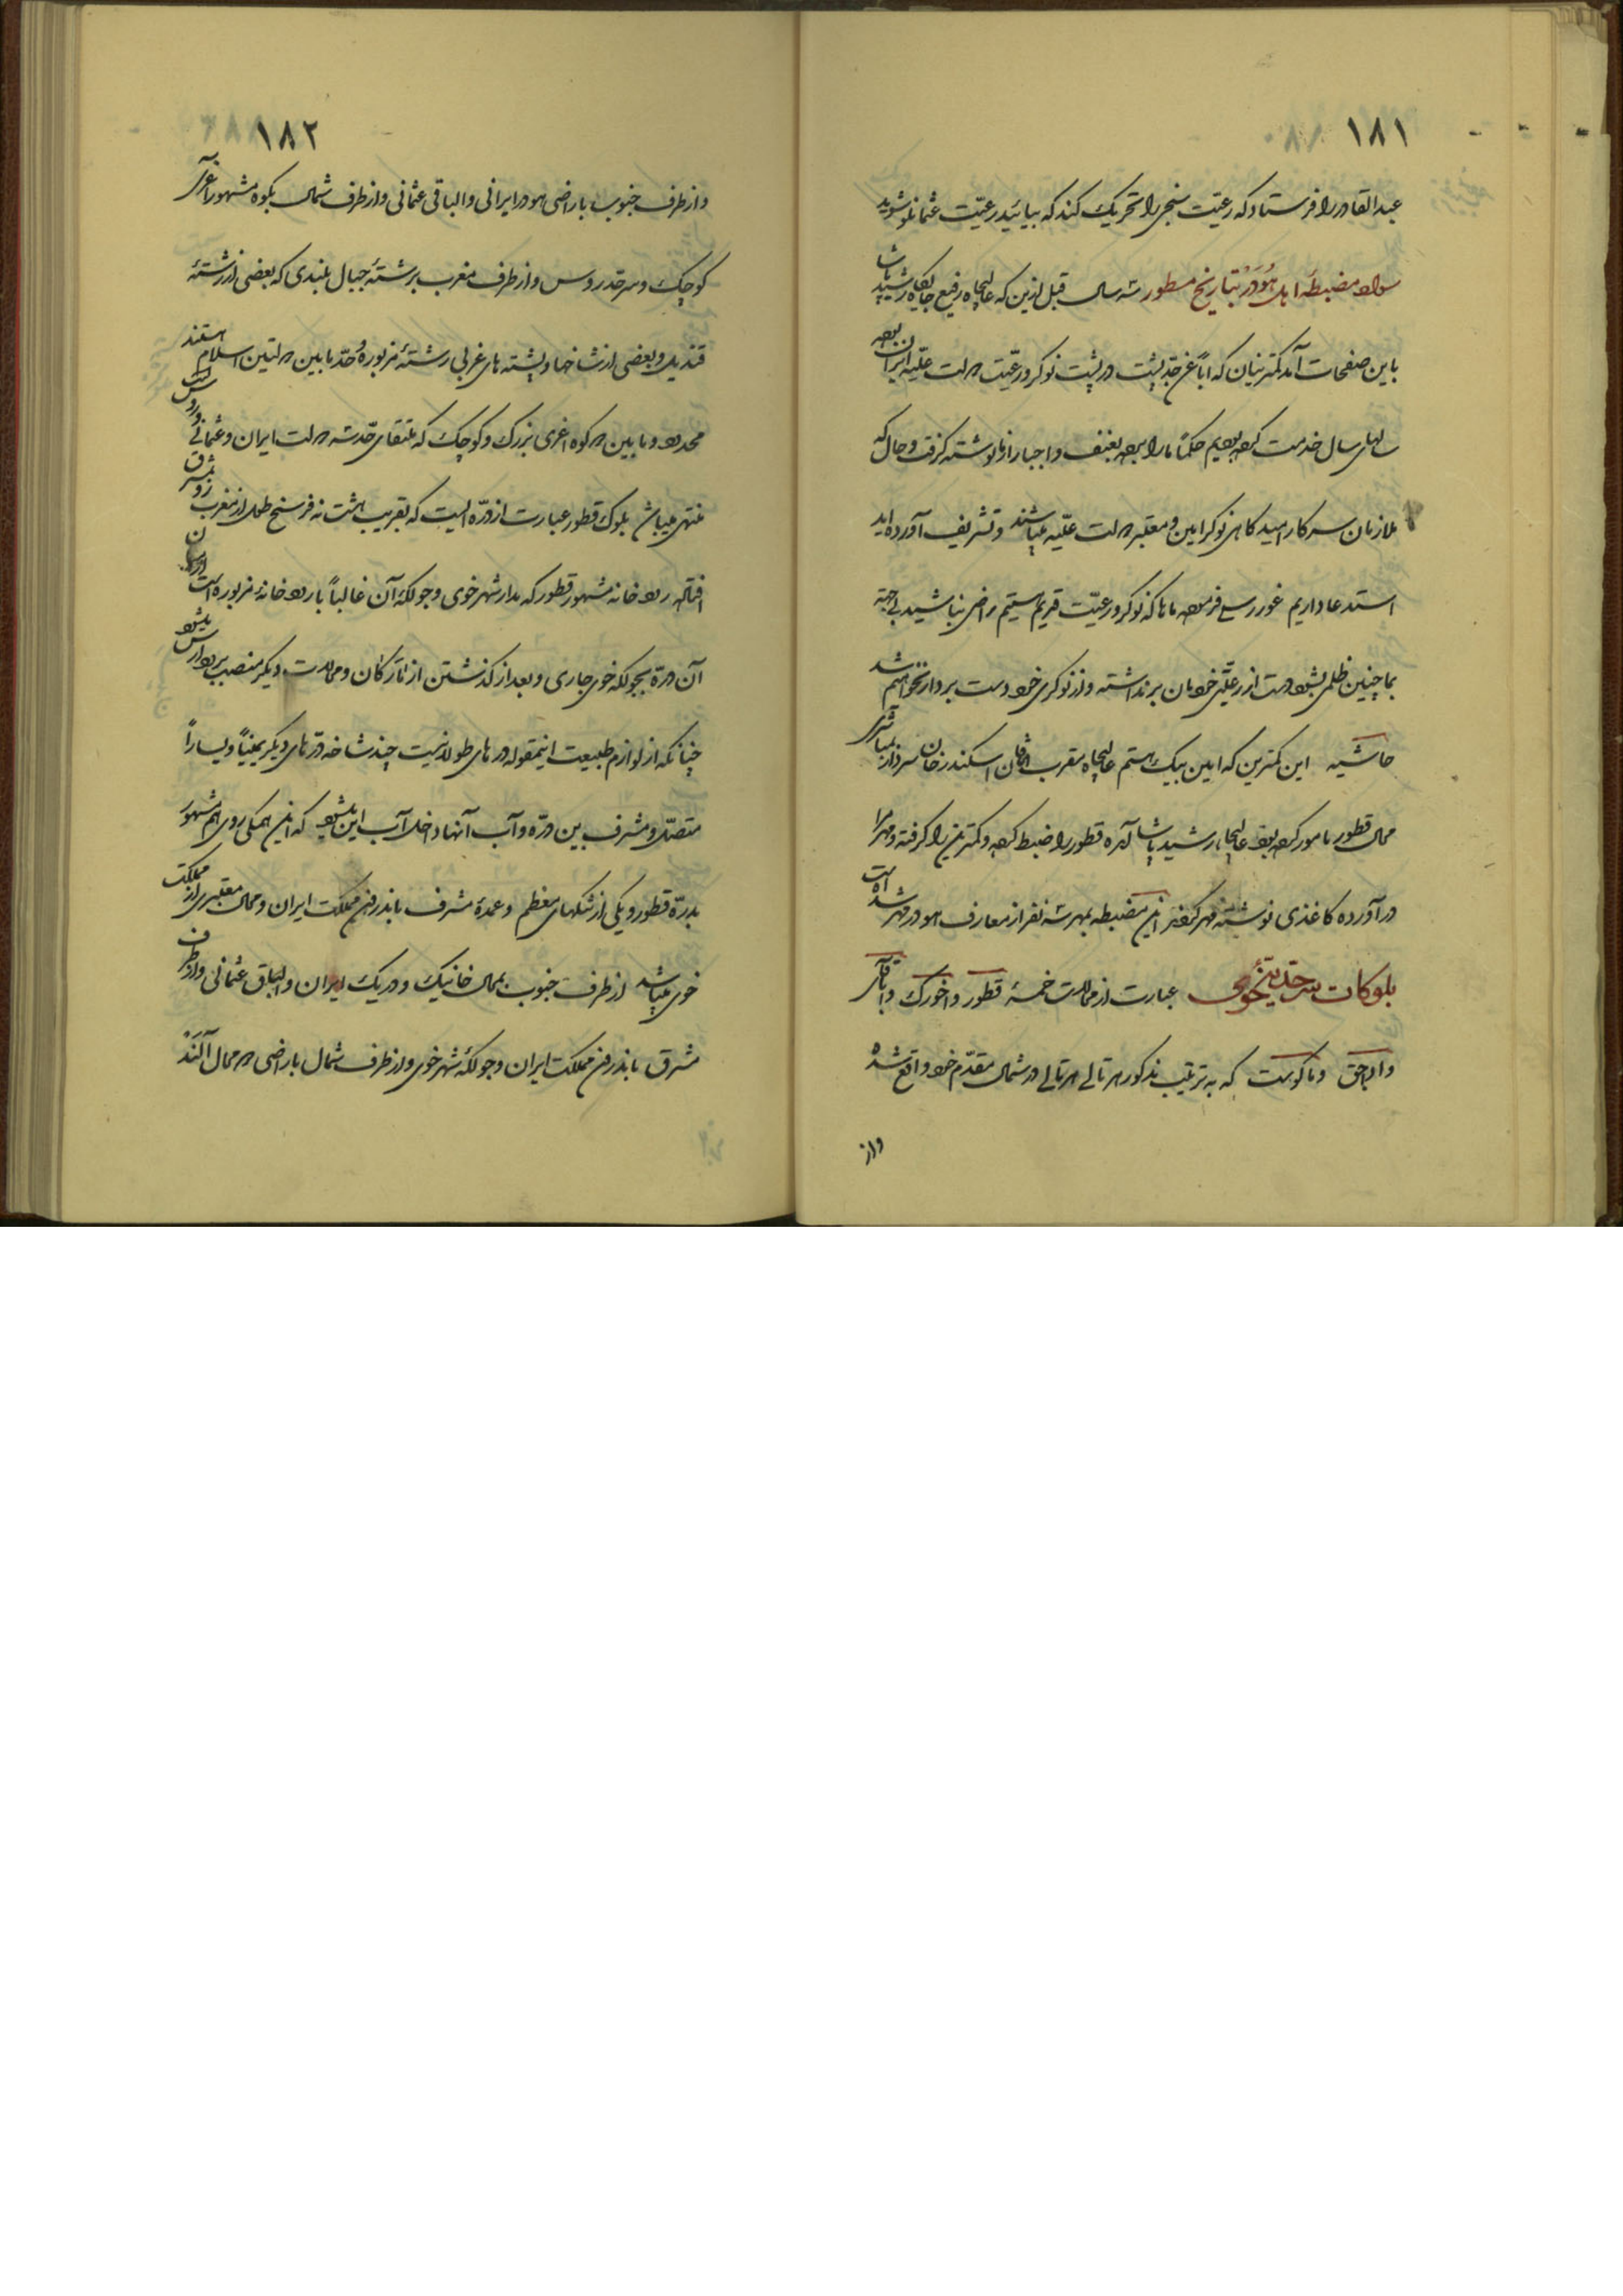 ۱۸۱
عبدالقادر را فرستاد که رعیّت سنجی را تحریک کند که بیائید رعیّت عثمانلو شوید
سواد مضبطهٔ اهل هُودَر بتاریخ مسطور سه سال قبل ازین که عالیجاه رفیع جایگاه رشید پاشا
باین صفحات آمد کمترینان که اباً عن جدّ پشت در پشت نوکر و رعیّت دولت علّیه ایران بوده
سالهای سال خدمت کرده بودیم حکماً ما را برده بعنف و اجبار از ما نوشته گرفت و حال که
ملازمان سرکار امیدگاهی نوکر امین و معتبر دولت علّیه میباشند و تشریف آورده‌اید
استدعا داریم غوررسی فرموده ماها که نوکر و رعیّت قدیم هستیم راضی نباشید بی‌جهة
بما چنین ظلمی بشود دست از رعیّتی خودمان برنداشته و از نوکری خود دست بردار نخواهیم شد
حاشیه این کمترین که امین بیک هستم عالیجاه مقرب الخاقان اسکندر خان سردار بمباشری
محال قطور مامور کرده بود عالیجاه رشید پاشا آمده قطور را ضبط کرده و کمترین را گرفته و مهر مرا
درآورده کاغذی نوشته مهر کرده‌اند این مضبطه بمهر سه نفر از معارف هودر مهر شده است
بلوکات سرحدّیهٔ خوی عبارت از محالات خمسهٔ قطور و اخورک و آباقای
و الاجق و ماکوست که به ترتیب مذکور هر تالی در شمال مقدّم خود واقع شده
واز
۱۸۲
و از طرف جنوب باراضی هودر ایرانی و الباقی عثمانی و از طرف شمال بکوه مشهور اغری
کوچک و سرحد روس و از طرف مغرب برشتهٔ جبال بلندی که بعضی از رشتهٔ
قندیل و بعضی از شاخها و پشته‌های غربی رشتهٔ مزبوره و حدّ ما بین دولتین اسلام هستند
محدود و ما بین دو کوه اغری بزرگ و کوچک که ملتقای حدّ سه دولت ایران و عثمانی و روس است
منتهی میباشد بلوک قطور عبارت از درّه‌ایست که بقریب هشت نه فرسخ طول از مغرب رو بمشرق
افتاده رودخانه مشهور قطور که مدار شهر خوی و جولگهٔ آن غالباً با رودخانهٔ مزبوره است از میان
آن درّه بجولگه خوی جاری و بعد از گذشتن از انار کان و محالات دیگر منصب برود ارس میشود
چنانکه از لوازم طبیعت اینمقوله درّه‌های طولانیست چند شاخه درّه‌های دیگر یمیناً و یساراً
متصّل و مشرف بین درّه و آب آنها داخل آب این میشود که این همگی روی هم مشهور
بدرّه قطور و یکی از تنگهای معظم و عمدهٔ مشرف باندرون مملکت ایران و محال معتبری از مملکت
خوی میباشد از طرف جنوب بمحال خانیک و دریک ایران و الباق عثمانی و از طرف
مشرق باندرون مملکت ایران و جولگهٔ شهر خوی و از طرف شمال باراضی دو محال آلَند